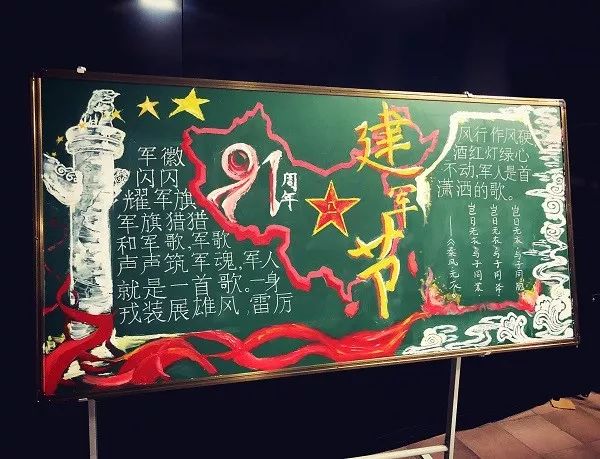 军徽
闪闪
耀,军旗
军旗猎猎
和军歌,军歌
声声筑军魂,军人
就是一首歌。一身
戎装展雄风,雷厉
91
周年
八一
建军节
风行作风硬
酒红灯绿心
不动,军人是首
潇洒的歌。
岂曰无衣 与子同袍
岂曰无衣 与子同泽
岂曰无衣 与子同裳
——《秦风·无衣》